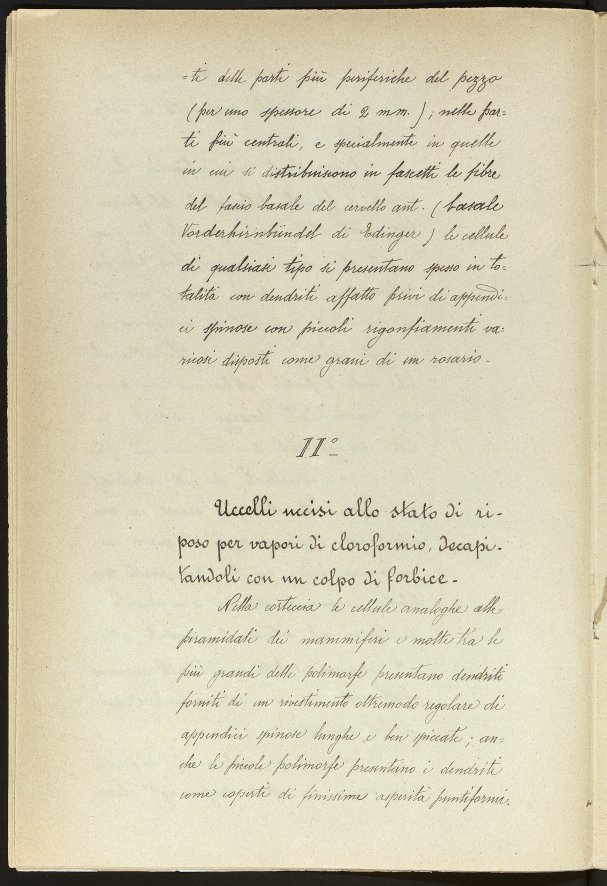 =ti delle parti più periferiche del pezzo
(per uno spessore di 2 m.m.); nelle par=
ti più centrali, e specialmente in quelle
in cui si distribuiscono in fascetti le fibre
del fascio basale del cervello ant. (basale
Vorderhirnbündel di Edinger) le cellule
di qualsiasi tipo si presentano spesso in to-
talità con dendriti affatto privi di appendi-
ci spinose con piccoli rigonfiamenti va=
ricosi disposti come grani di un rosario -
IIº
Uccelli uccisi allo stato di ri-
poso per vapori di cloroformio, decapi-
tandoli con un colpo di forbice -
Nella corteccia le cellule analoghe alle
piramidali dei mammiferi e molte tra le
più grandi delle polimorfe presentano dendriti
forniti di un rivestimento oltremodo regolare di
appendici spinose lunghe e ben spiccate; an-
che le piccole polimorfe presentano i dendriti
come coperti di finissime asperità puntiformi.